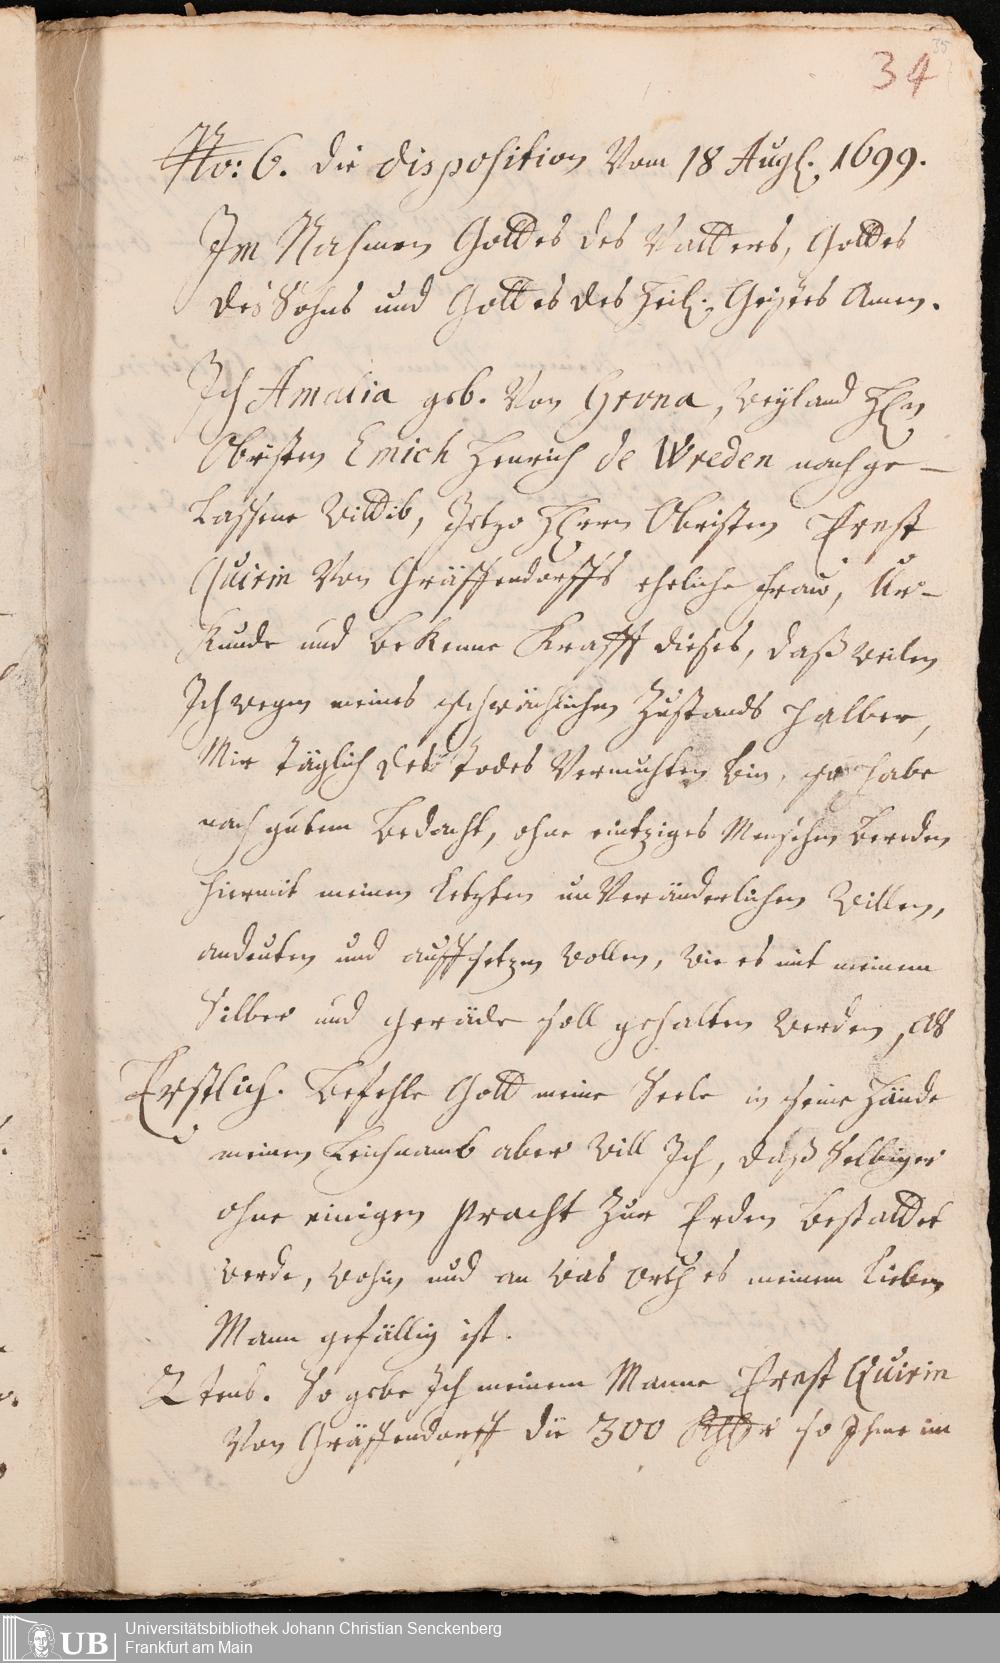 35
34
No: 6. die disposition Vom 18 Augs. 1699.
Im Nahmen Gottes des Vatters, Gottes
des Sohns und Gottes des Heil. Geistes Amen.
Ich Amalia geb. Von Grona, Weyland Hrn
Obristen Emich Henrich de Wreden nachge-
Lassene Wittib, Jetzo Herrn Obristen Ernst
Quirin Von Gräffendorffs eheliche Fraw, Ur-
Kunde und beKenne Krafft dieses, daß weilen
Ich wegen meines schwächlichen Zustands halber,
Mir täglich des Todes Vermuthen bin, so habe
nach gutem Bedacht, ohne eintziges Menschen bereden
hiermit meinen Letzten unVeränderlichen Willen,
andeuten und auffsetzen wollen, wie es mit meinem
Silber und geräde soll gehalten werden, als
Erstlich. Befehle Gott meine Seele in seine Hände
meinen Leichnamb aber will Ich, daß Selbiger
ohne einigen Pracht zur Erden bestattet
werde, wohin, und an was orth es meinem Lieben
Mann gefällig ist.
2tens. So gebe Ich meinem Manne Ernst Quirin
Von Gräffendorff die 300 Rthlr so Ihme im
Universitätsbibliothek Johann Christian Senckenberg
Frankfurt am Main
UB